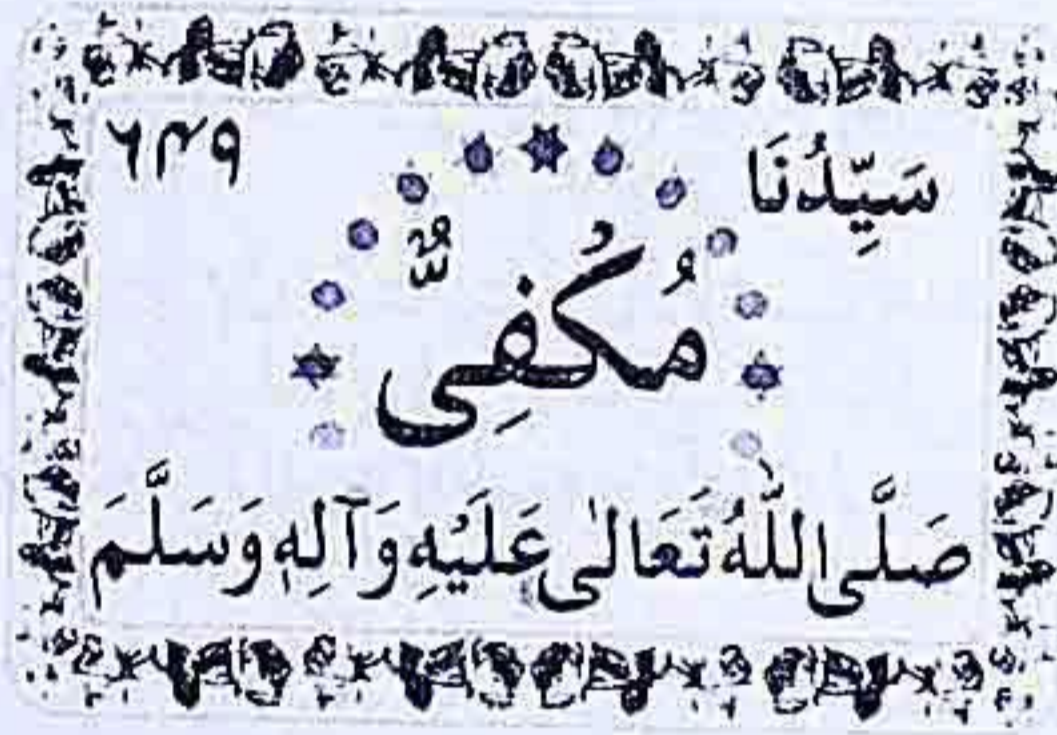 سَيِّدُنَا ۶۴۹
مُكْفِىٌّ
صَلَّى اللّٰهُ تَعَالٰى عَلَيْهِ وَآلِهٖ وَسَلَّمَ